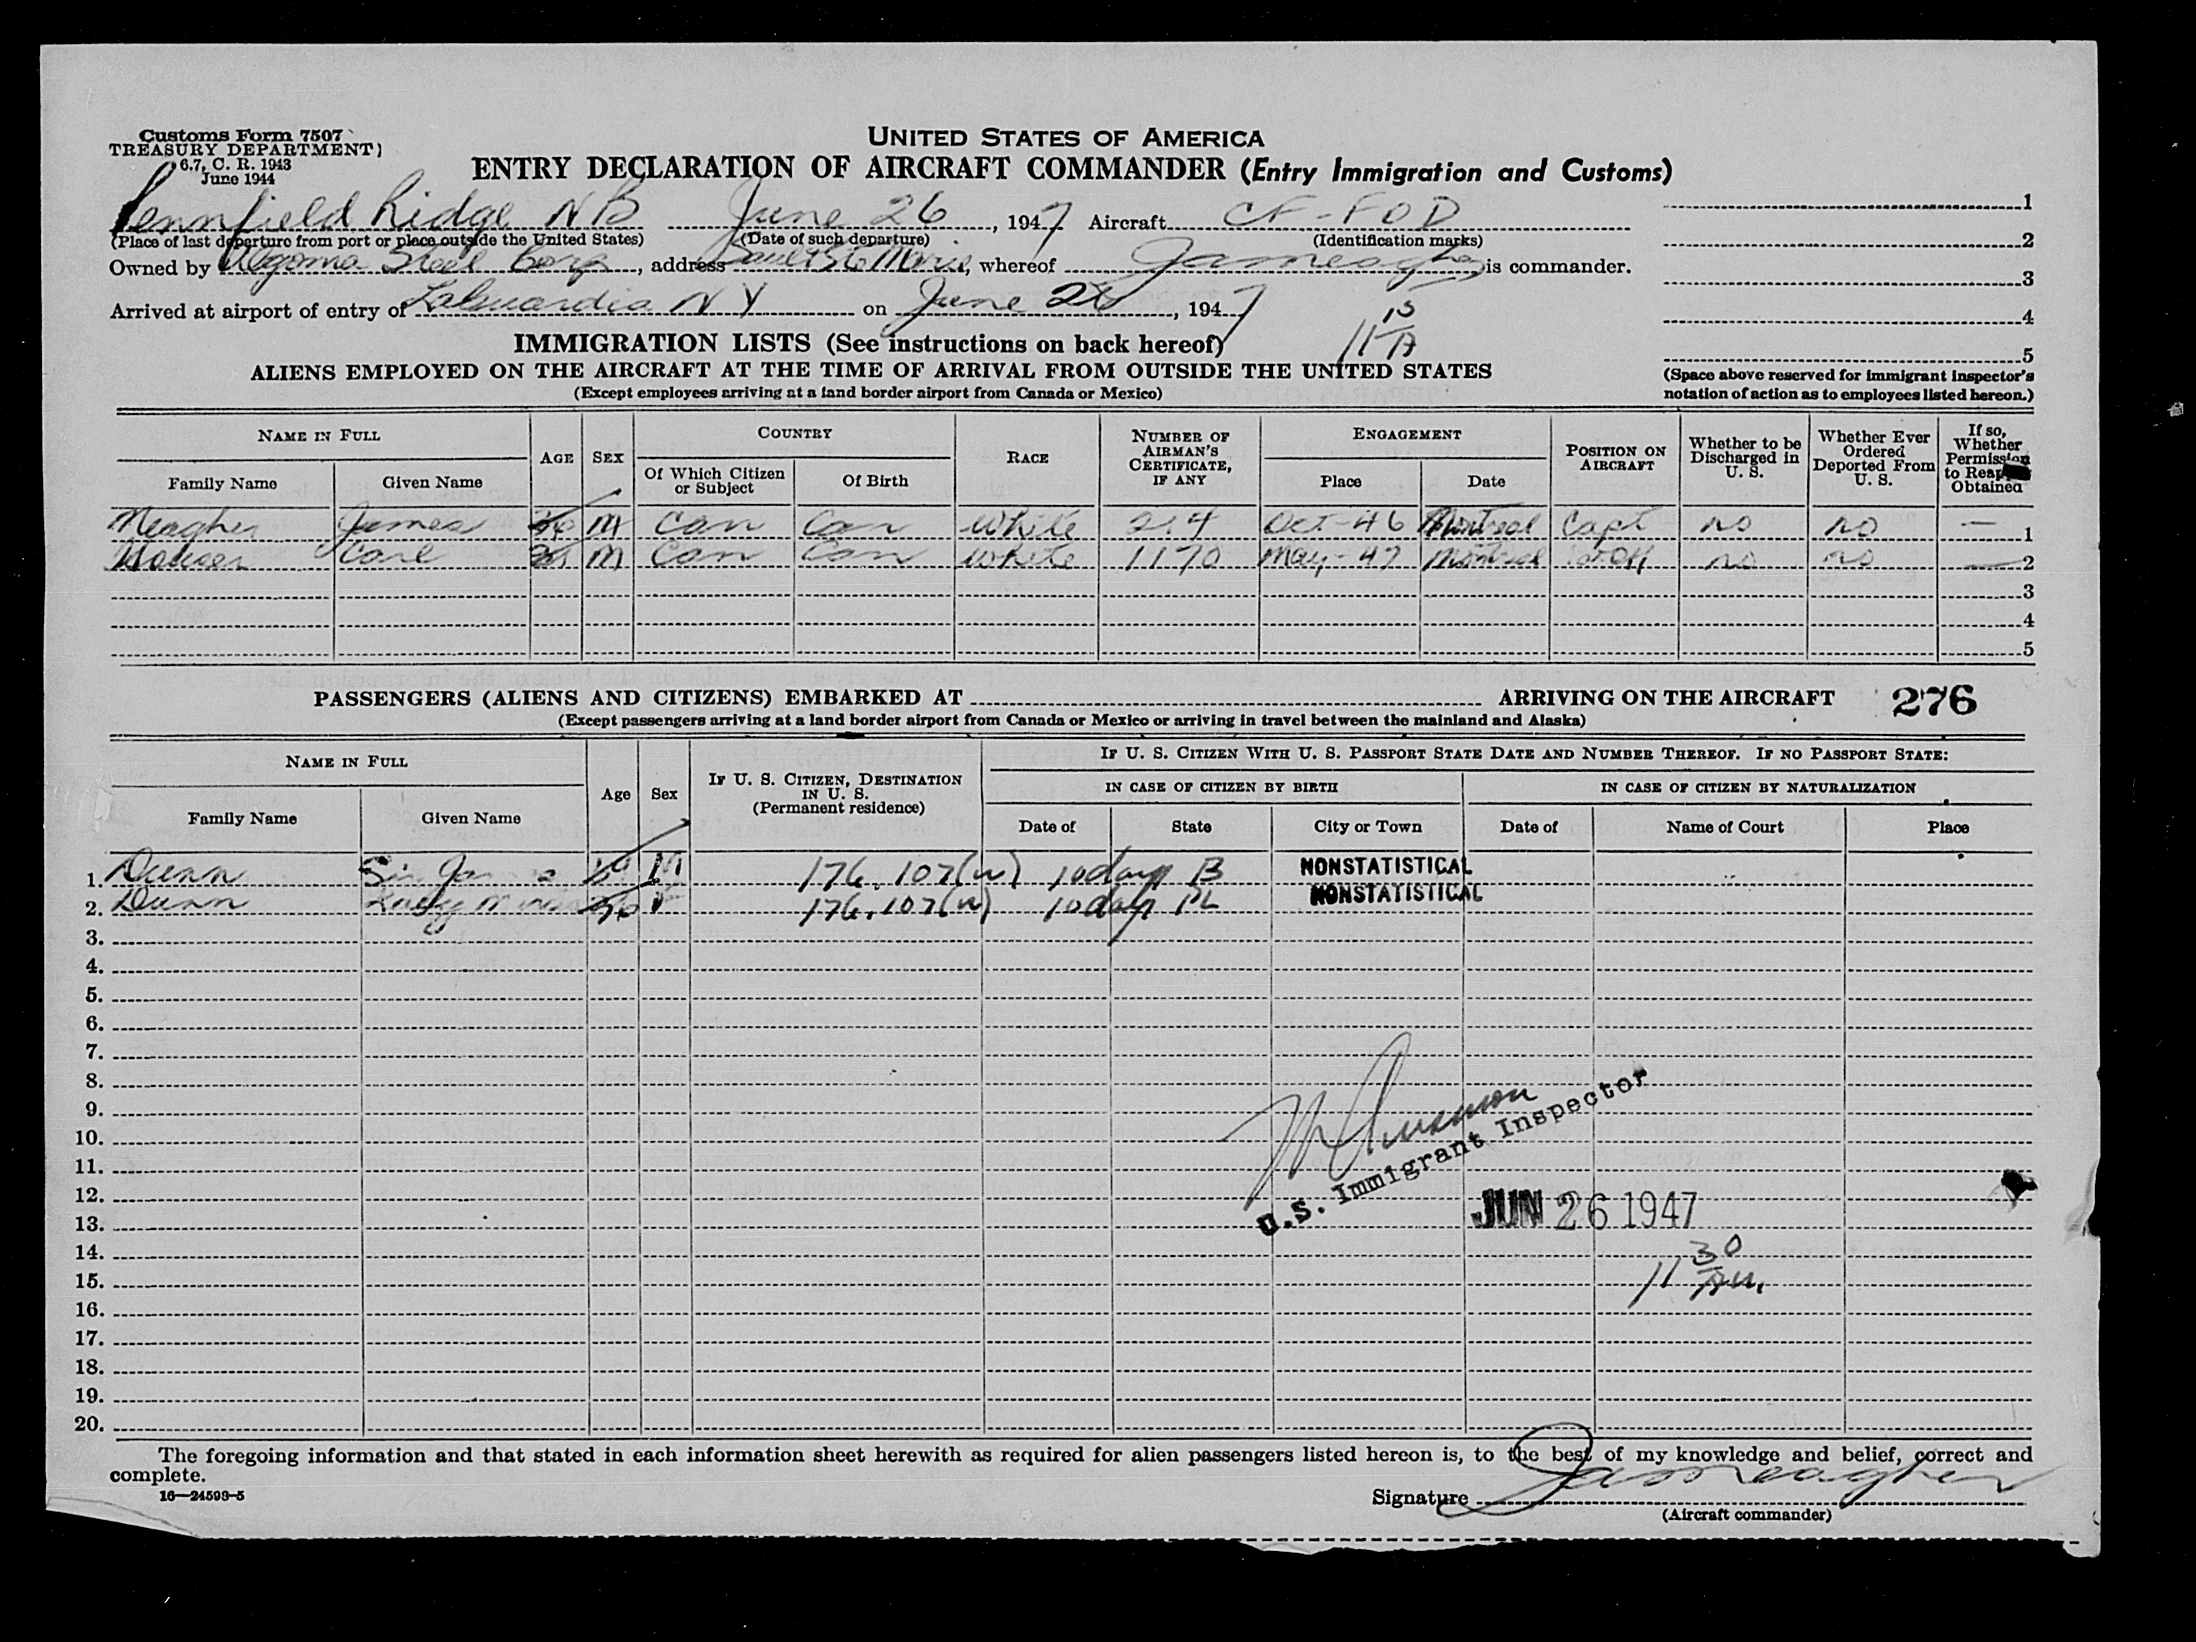 Customs Form 7507
TREASURY DEPARTMENT
6.7, C. R. 1943
June 1944
UNITED STATES OF AMERICA
ENTRY DECLARATION OF AIRCRAFT COMMANDER (Entry Immigration and Customs)
Pennfield Ridge NB June 26, 1947 Aircraft CF-FOD
(Place of last departure from port or place outside the United States) (Date of such departure) (Identification marks)
Owned by Algoma Steel Corp, address Sault Ste Marie, whereof Ja Meagher is commander.
Arrived at airport of entry of LaGuardia N Y on June 26, 1947
11 15 A
1
2
3
4
5
(Space above reserved for immigrant inspector's
notation of action as to employees listed hereon.)
IMMIGRATION LISTS (See instructions on back hereof)
ALIENS EMPLOYED ON THE AIRCRAFT AT THE TIME OF ARRIVAL FROM OUTSIDE THE UNITED STATES
(Except employees arriving at a land border airport from Canada or Mexico)
NAME IN FULL AGE SEX COUNTRY RACE NUMBER OF AIRMAN'S CERTIFICATE, IF ANY ENGAGEMENT POSITION ON AIRCRAFT Whether to be Discharged in U. S. Whether Ever Ordered Deported From U. S. If so, Whether Permission to Reapply Obtained
Family Name Given Name Of Which Citizen or Subject Of Birth Place Date
Meagher James M Can Can White 214 Oct-46 Montreal Capt no no — 1
Carl M Can Can White 1170 May-47 Montreal 1st Off no no — 2
3
4
5
PASSENGERS (ALIENS AND CITIZENS) EMBARKED AT ARRIVING ON THE AIRCRAFT 276
(Except passengers arriving at a land border airport from Canada or Mexico or arriving in travel between the mainland and Alaska)
NAME IN FULL Age Sex IF U. S. CITIZEN, DESTINATION IN U. S. (Permanent residence) IF U. S. CITIZEN WITH U. S. PASSPORT STATE DATE AND NUMBER THEREOF. IF NO PASSPORT STATE:
IN CASE OF CITIZEN BY BIRTH IN CASE OF CITIZEN BY NATURALIZATION
Family Name Given Name Date of State City or Town Date of Name of Court Place
1. Dunn Sir James M 176.107(w) 10 days B NONSTATISTICAL
2. Dunn Lady F 176.107(w) 10 days PL NONSTATISTICAL
3.
4.
5.
6.
7.
8.
9.
10.
11.
12.
13.
14.
15.
16.
17.
18.
19.
20.
U.S. Immigrant Inspector
JUN 26 1947
11 30 AM.
The foregoing information and that stated in each information sheet herewith as required for alien passengers listed hereon is, to the best of my knowledge and belief, correct and
complete.
16—24593-5
Signature Ja Meagher
(Aircraft commander)